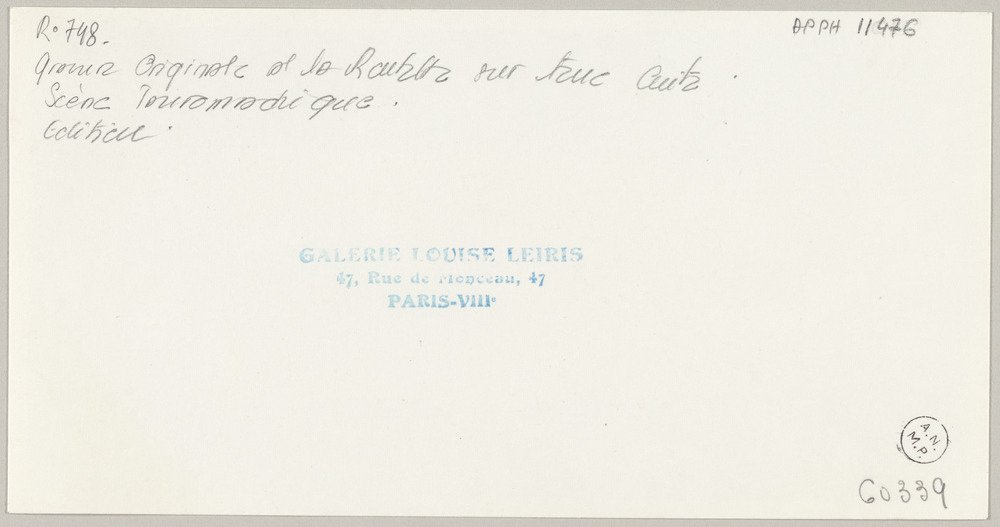 R° 748.
APPH 11476
Gravure Originale et la Roulette sur terre cuite.
Scène Tauromachique.
Edition.
GALERIE LOUISE LEIRIS
47, Rue de Monceau, 47
PARIS-VIIIᵉ
A.N.
M.P.
60339